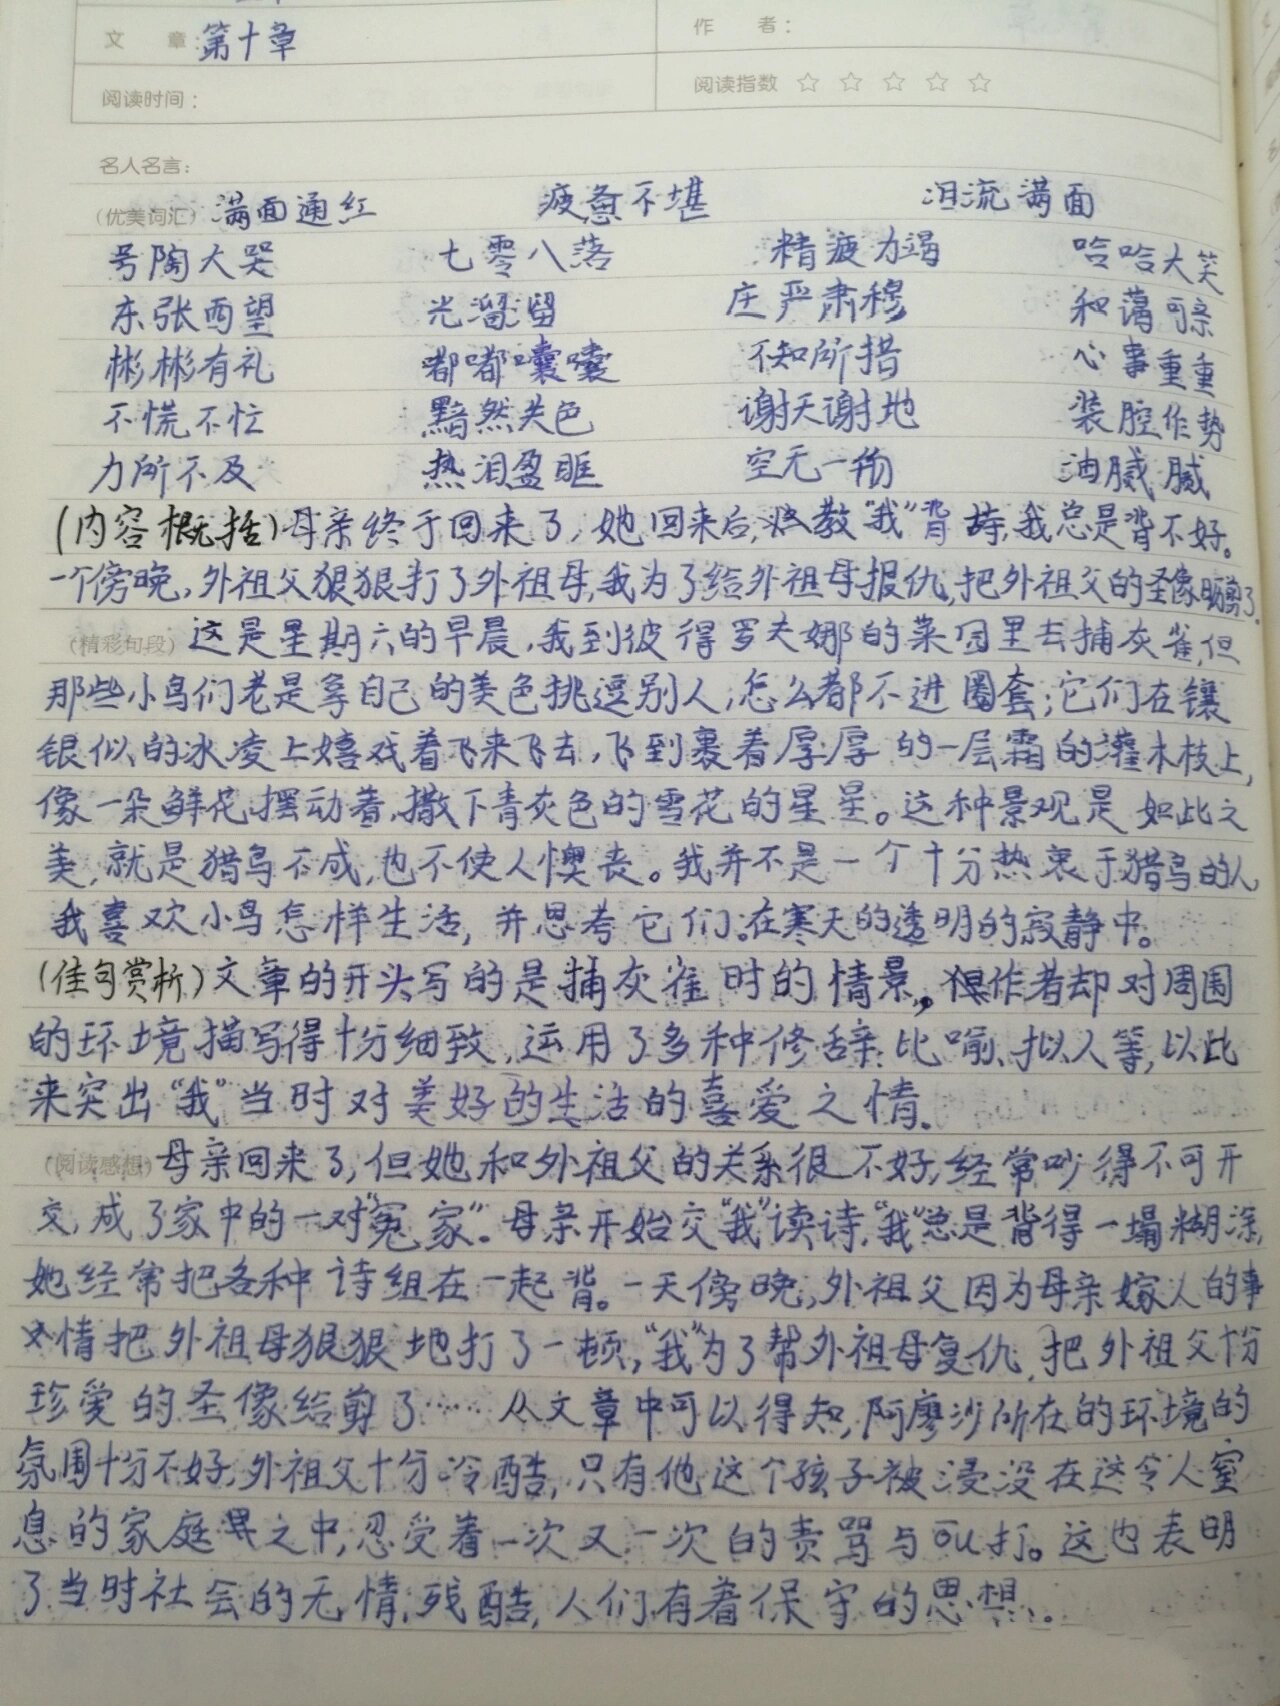 文 章：第十章 作 者：
阅读时间： 阅读指数 ☆ ☆ ☆ ☆ ☆
名人名言：
（优美词汇）满面通红 疲惫不堪 泪流满面
号陶大哭 七零八落 精疲力竭 哈哈大笑
东张西望 光溜留 庄严肃穆 和蔼可亲
彬彬有礼 嘟嘟囔囔 不知所措 心事重重
不慌不忙 黯然失色 谢天谢地 装腔作势
力所不及 热泪盈眶 空无一物 油腻腻
(内容概括)母亲终于回来了，她回来后，教“我”背诗，我总是背不好。
一个傍晚，外祖父狠狠打了外祖母，我为了给外祖母报仇，把外祖父的圣像剪了。
（精彩句段）这是星期六的早晨，我到彼得罗夫娜的菜园里去捕灰雀，但
那些小鸟们老是拿自己的美色挑逗别人，怎么都不进圈套；它们在镶
银似的冰凌上嬉戏着飞来飞去，飞到裹着厚厚的一层霜的灌木枝上，
像一朵鲜花摆动着，撒下青灰色的雪花的星星。这种景观是如此之
美，就是猎鸟不成，也不使人懊丧。我并不是一个十分热衷于猎鸟的人，
我喜欢小鸟怎样生活，并思考它们。在寒天的透明的寂静中。
(佳句赏析)文章的开头写的是捕灰雀时的情景，作者却对周围
的环境描写得十分细致，运用了多种修辞：比喻、拟人等，以此
来突出“我”当时对美好的生活的喜爱之情。
（阅读感想）母亲回来了，但她和外祖父的关系很不好，经常吵得不可开
交，成了家中的一对“冤家”。母亲开始交“我”读诗，“我”总是背得一塌糊涂，
她经常把各种诗组在一起背。一天傍晚，外祖父因为母亲嫁人的事
情把外祖母狠狠地打了一顿，“我”为了帮外祖母复仇，把外祖父十分
珍爱的圣像给剪了……从文章中可以得知，阿廖沙所在的环境的
氛围十分不好，外祖父十分冷酷，只有他这个孩子被浸没在这令人窒
息的家庭之中，忍受着一次又一次的责骂与殴打。这也表明
了当时社会的无情，残酷，人们有着保守的思想。